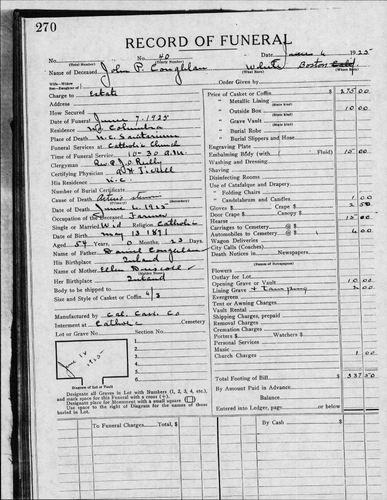 270
RECORD OF FUNERAL
No. No. 40 Date June 6 1925
(Total Number) (Yearly Number)
Name of Deceased John P. Coughlan White Boston
(What Race)
Husband—Wife
Son—Daughter of Order Given by
Charge to Estate
Address
How Secured
Date of Funeral June 7, 1925
Residence Columbia
Place of Death N.C. Sanitarium
Funeral Services at Catholic Church
Time of Funeral Service 10-30 A.M.
Clergyman Rev.
Certifying Physician
His Residence N.C.
Number of Burial Certificate
Cause of Death
Date of Death 1925
Occupation Farmer
Single or Married Wid Religion Catholic
Date of Birth May 13 1871
Aged 54 Years 0 Months 23 Days
Name of Father Daniel Coughlan
His Birthplace Ireland
Name of Mother Ellen Driscoll
(Maiden Name)
Her Birthplace Ireland
Body to be shipped to
Size and Style of Casket or Coffin 6/3
Manufactured by Cal. Cas. Co
Interment at Catholic Cemetery
Lot or Grave No. Section No.
1.
2.
3.
4.
5.
6.
Diagram of Lot or Vault
Designate all Graves in Lot with Numbers (1, 2, 3, 4, etc.),
and mark space for this Funeral with a cross (+)
Designate place for Monument with a small square
Use space to right of Diagram for the names of those
buried in Lot.
Price of Casket or Coffin 275 00
" Metallic Lining
(State kind)
" Outside Box 10 00
(State kind)
" Grave Vault
(State kind)
" Burial Robe
" Burial Slippers and Hose
Engraving Plate
Embalming Body (with Fluid) 15 00
Washing and Dressing
Shaving
Disinfecting Rooms
Use of Catafalque and Drapery
" Folding Chairs
" Candelabrum and Candles 1 00
Gloves $ Crape $ 2 50
Door Crape $ Canopy $
Hearse 15 00
Carriages to Cemetery @ $
Automobiles to Cemetery @ $ 4 00
Wagon Deliveries
City Calls (Coaches)
Death Notices in Newspapers
(Names of Newspapers)
Flowers
Outlay for Lot
Opening Grave or Vault 10 00
Lining Grave
Evergreen
Tent or Awning Charges
Vault Rental
Shipping Charges, prepaid
Removal Charges
Cremation Charges
Porters $ Watchers $
Personal Services
Music
Church Charges 1 00
Total Footing of Bill $ 337 50
By Amount Paid in Advance
Balance
Entered into Ledger, page or below
To Funeral Charges, Total $ By Cash $